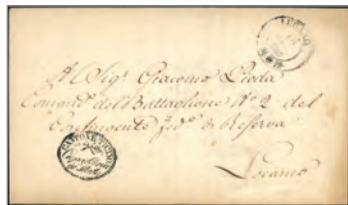 Al Sigr Giacomo Pioda
Comandte del Battaglione No 2 del
Contingente fedo di Reserva
Locarno
CANTONE TICINO